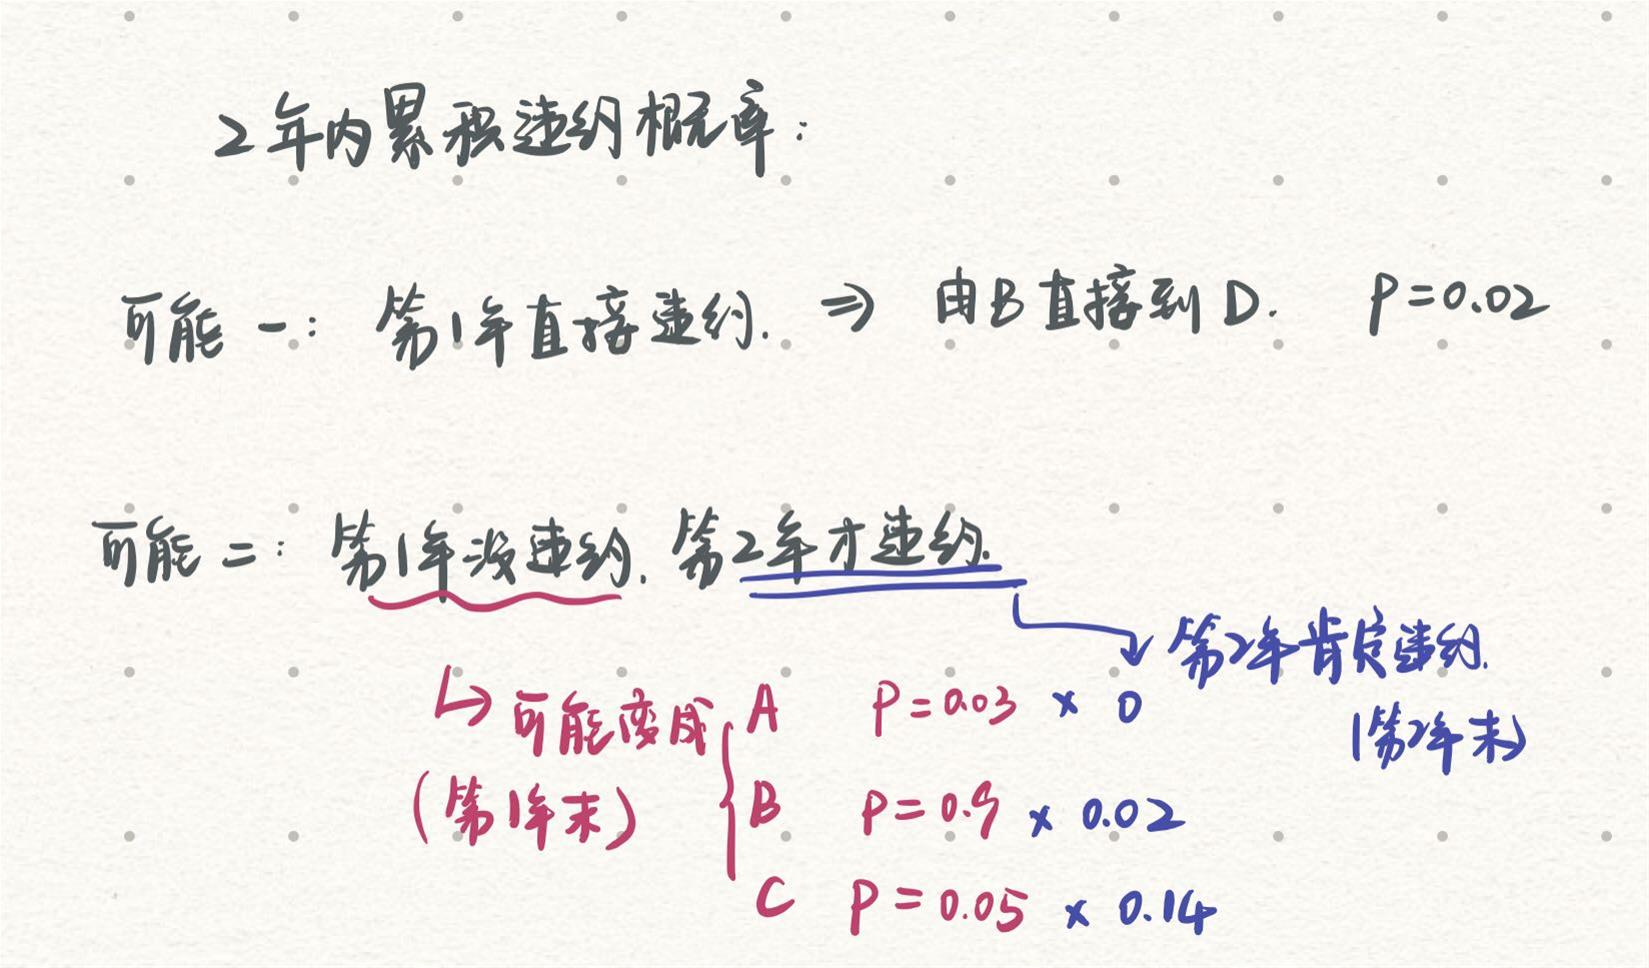 2年内累积违约概率:
可能一: 第1年直接违约. ⇒ 由B直接到D. P=0.02
可能二: 第1年没违约. 第2年才违约.
第2年肯定违约.
(第2年末)
↳ 可能变成
(第1年末)
A P=0.03 × 0
B P=0.9 × 0.02
C P=0.05 × 0.14